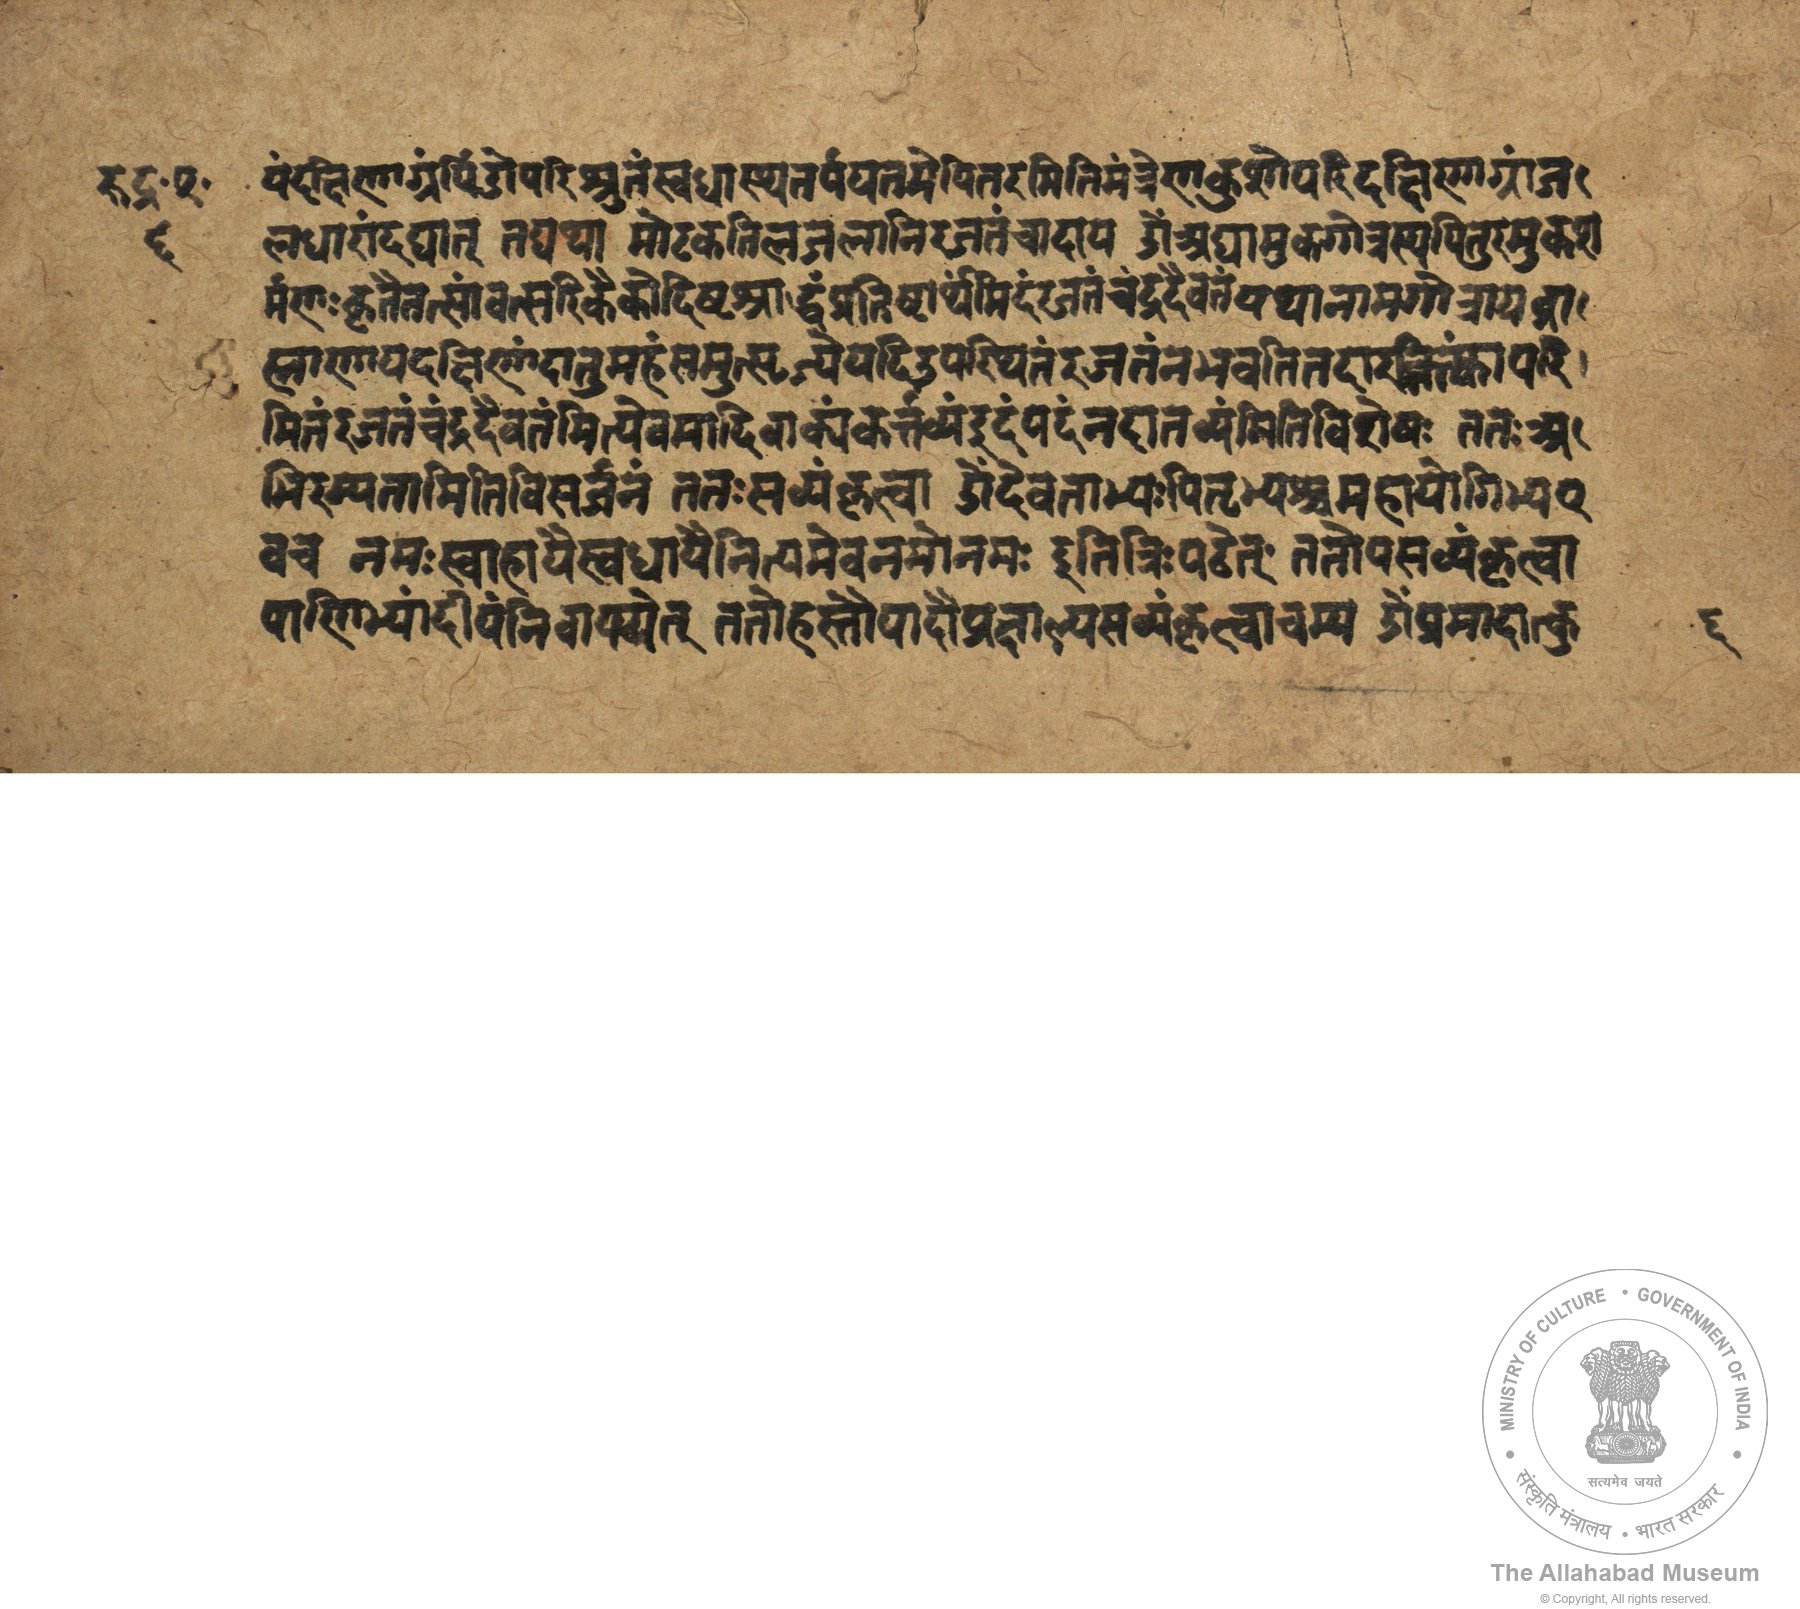 रुद्र॰ प्र॰
६
पंदक्षिणाग्रंपिंडोपरिश्रुतंस्वधास्थतर्पयतमेपितरमितिमंत्रेणकुशोपरिदक्षिणाग्रांज
लधारांदद्यात् तद्यथा मोटकतिलजलानिरजतंचादाय ॐअद्यामुकगोत्रस्यपितुरमुकश
र्मणःकृतैतत्सांवत्सरिकैकोदिष्टश्राद्धप्रतिष्ठार्थमिदंरजतंचंद्रदैवतंयथानामगोत्रायब्रा
ह्मणायदक्षिणांदातुमहंसमुत्सृज्यैयदिउपस्थितंरजतंनभवतितदा परि
मितंरजतंचंद्रदैवतंमित्येवमादिवाक्यंकर्त्तव्यंइदंपदंनदातव्यंमितिविशेषः ततःअ
भिरम्यतामितिविसर्जनं ततःसव्यंकृत्वा ॐदेवताभ्यःपितृभ्यश्चमहायोगिभ्यए
वच नमःस्वाहायैस्वधायैनित्यमेवनमोनमः इतित्रिःपठेत् ततोपसव्यंकृत्वा
पाणिभ्यांदीपंनिर्वापयेत् ततोहस्तौपादौप्रक्षाल्यसव्यंकृत्वाचम्य ॐप्रमादात्कु
६
MINISTRY OF CULTURE • GOVERNMENT OF INDIA
सत्यमेव जयते
संस्कृति मंत्रालय • भारत सरकार
The Allahabad Museum
© Copyright, All rights reserved.